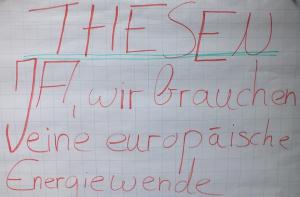 THESEN
JA!, wir brauchen
eine europäische
Energiewende